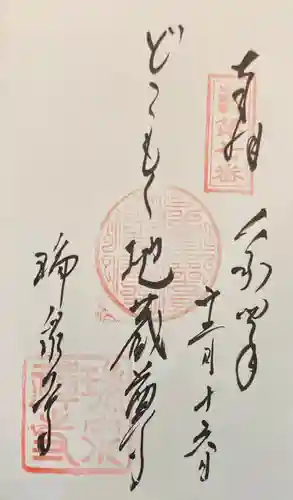 奉拝
令和四年
十二月十六日
どこもく地蔵尊
瑞泉寺